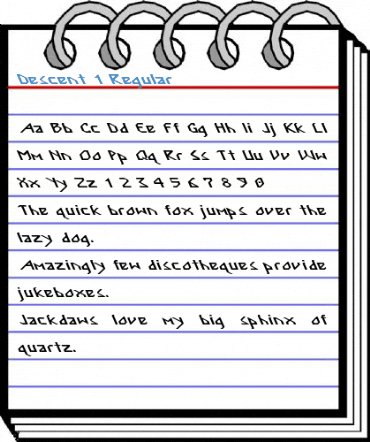 Descent 1 Regular
Aa Bb Cc Dd Ee Ff Gg Hh Ii Jj Kk Ll
Mm Nn Oo Pp Qq Rr Ss Tt Uu Vv Ww
Xx Yy Zz 1 2 3 4 5 6 7 8 9 0
The quick brown fox jumps over the
lazy dog.
Amazingly few discotheques provide
jukeboxes.
Jackdaws love my big sphinx of
quartz.